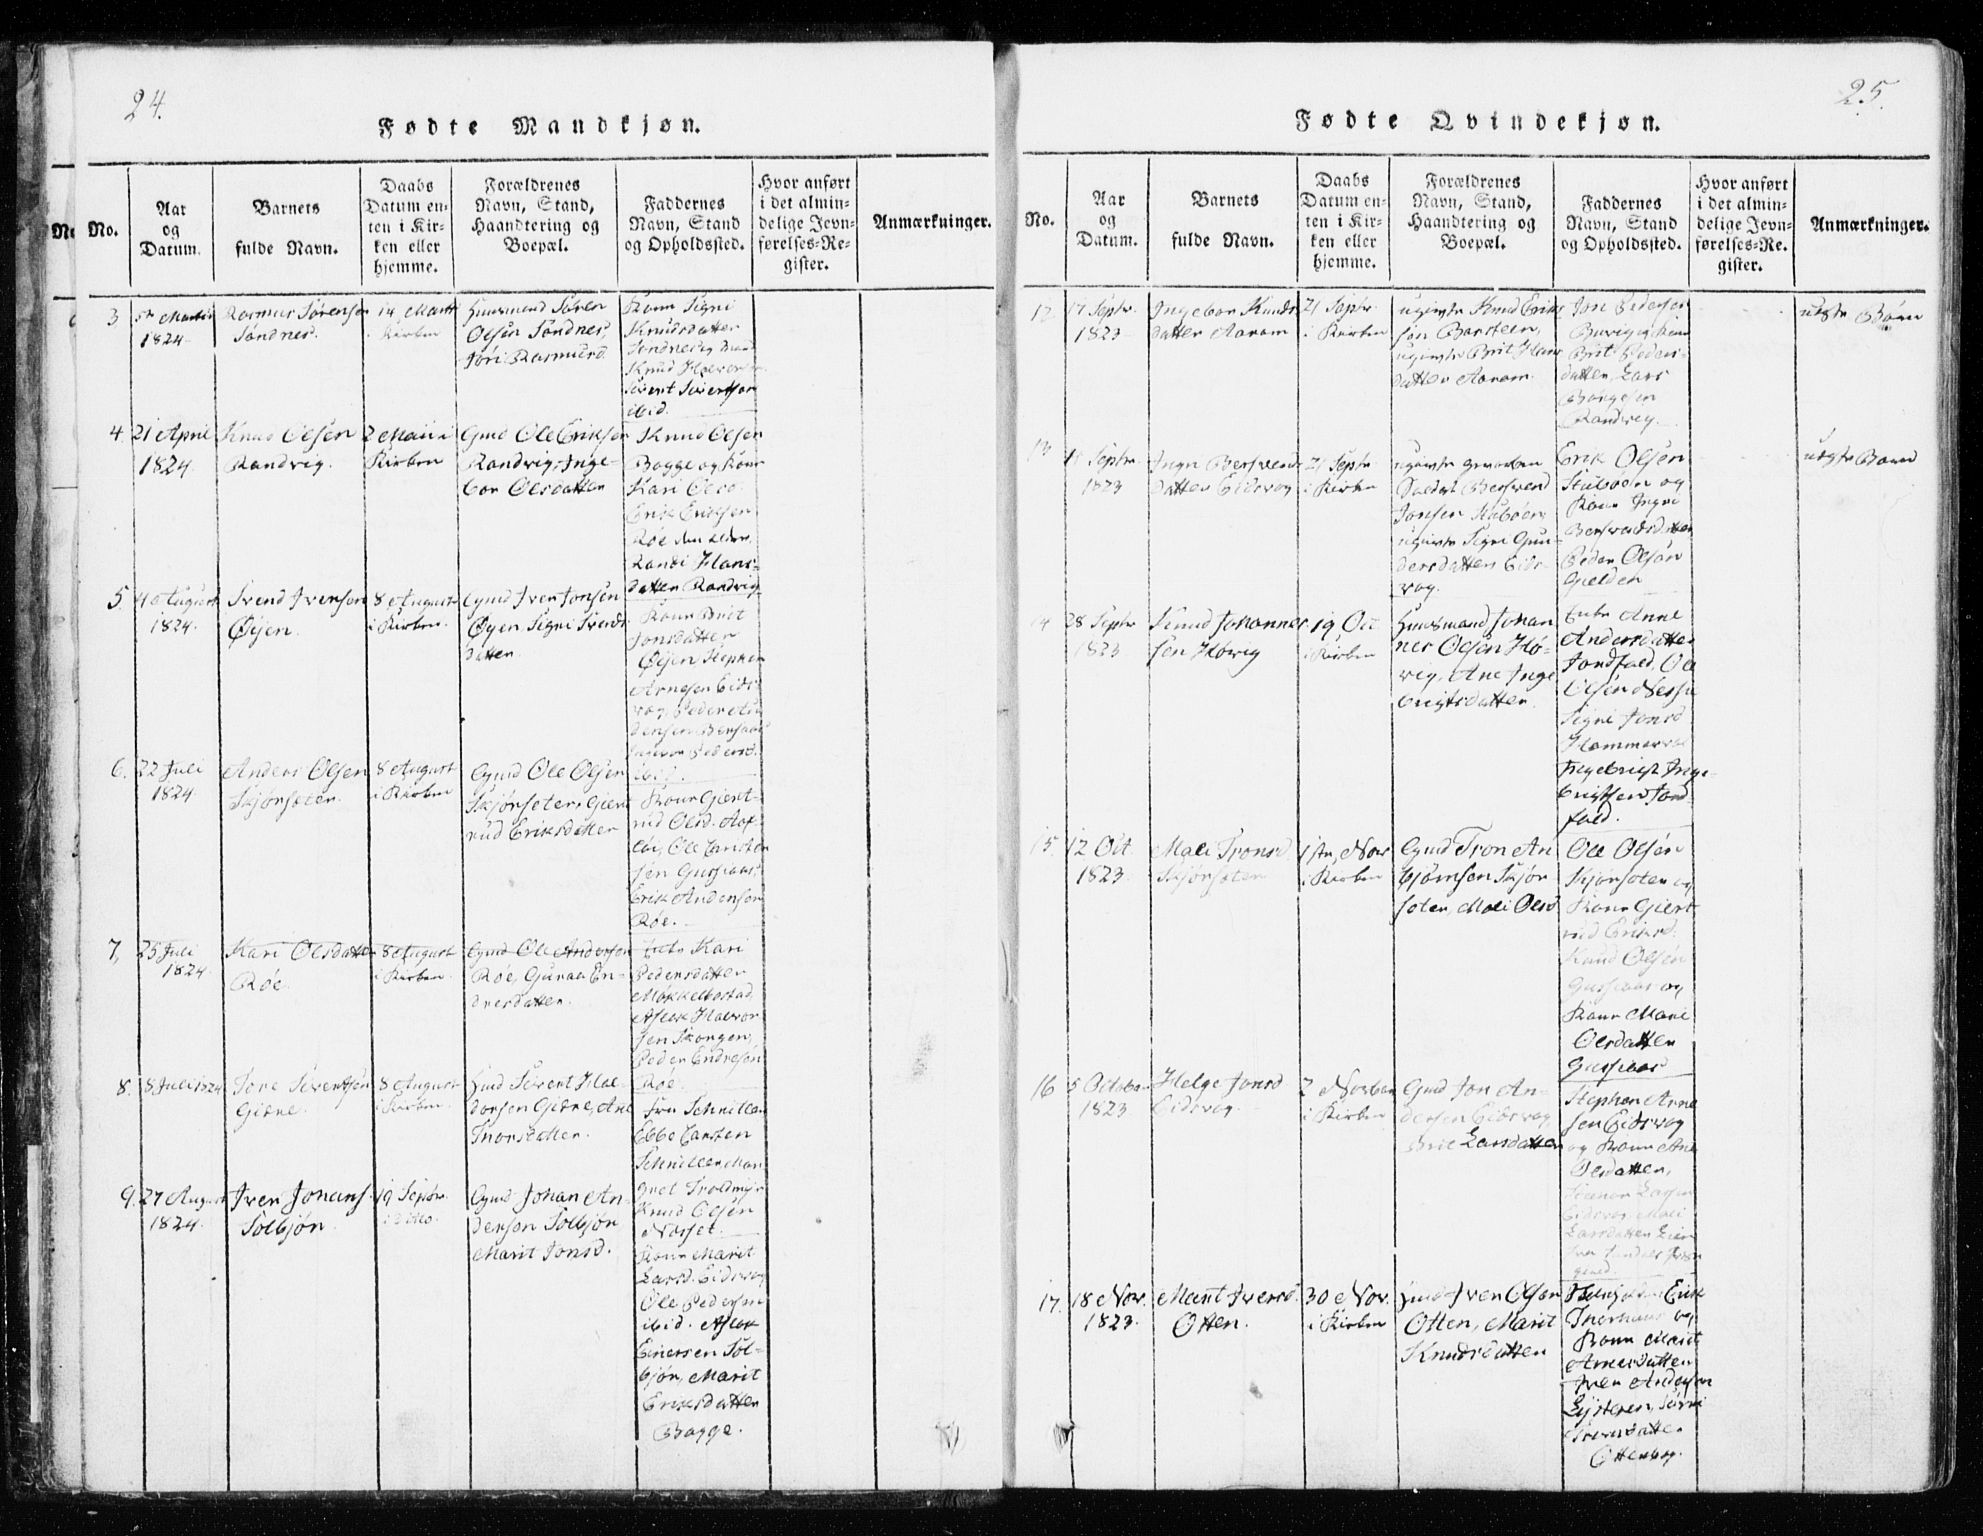 24.
Fødte Mandkjøn.
No.
Aar
og
Datum.
Barnets
fulde Navn.
Daabs
Datum en-
ten i Kir-
ken eller
hjemme.
Forældrenes
Navn, Stand,
Haandtering og
Boepæl.
Faddernes
Navn, Stand
og Opholdssted.
Hvor anført
i det almin-
delige Jevn-
førelses-Re-
gister.
Anmærkninger.
3
1824
Rasmus Sørensen
Sandnes.
14 Marti
i Kirken
Huusmand Søren
Olsen Sandnes,
Kone Signi
Knudsdatter
Knud Halvorsen
Sivert Sivertsen
ibid.
4.
21 April
1824.
Knud Olsen
Randvig.
2 Maii i
Kirken
Gmd Ole Eriksen
Randvig, Inge-
bor Olsdatter
Knud Olsen
Bogge og Kone
Kari Olsd.
Erik Eriksen
Røe den eldre,
Randi Hans-
datter Randvig
5.
4 August
1824.
Svend Iversen
Øyen.
8 August
i Kirken.
Gmd Iver Jonsen
Øyen, Signi Svends-
datter
Kone Brit
Jonsdatter
Øyen, Stephen
Arnesen Eids-
vog, Peder An-
dersen
ibid.
6.
22 Juli
1824
Anders Olsen
Skjørseter.
8 August
i Kirken
Gmd Ole Olsen
Skjørseter, Giert-
rud Eriksdatter
Kone Giert-
rud Olsd.
Ole Carsten-
sen Gussiaas,
Erik Andersen
Røe.
7,
25 Juli
1824.
Kari Olsdatter
Røe.
8 August
i Kirken.
Gmd Ole Andersen
Røe, Guraa En-
dresdatter.
Enke Kari
Pedersdatter
Møkkelbostad,
Aslak Halvor-
sen Skongen,
Peder Endresen
Røe.
8.
8 Juli 1824
Tore Sivertsen
8 August
i Kirken.
Gmd Sivert Hal-
Thorsdatter.
Fru Schnitler
Ebbe Carsten
Schnitler, Mar-
gret Troldmyr
Knud Olsen
Nosset.
9.
27 August
1824.
Iver Johans.
Solbjør.
19 Septbr.
i ditto.
Gmd Johan An-
dersen Solbjør
Marit Jonsd.
Kone Marit
Larsd. Eidsvog
Ole Pedersen
ibid. Aslak
Einersen Sol-
bjør, Marit
Eriksdatter
Bogge.
25.
Fødte Qvindekjøn.
No.
Aar
og
Datum.
Barnets
fulde Navn.
Daabs
Datum en-
ten i Kir-
ken eller
hjemme.
Forældrenes
Navn, Stand,
Haandtering og
Boepæl.
Faddernes
Navn, Stand
og Opholdssted.
Hvor anført
i det almin-
delige Jevn-
førelses-Re-
gister.
Anmærkninger.
12
17 Septr
1823
Ingebor Knuds-
datter Aaram
21 Septr
i Kirken
ugivte Knud Erik-
sen Barsteen,
ugivte Brit Hans-
datter Aaram.
Jon Pedersen
Brit Peders-
datter, Lars
Randvig.
uægte Barn
13
Septr
1823
Ingri Bersvends-
datter Eidsvog
21 Septr
i Kirken
ugivte
Soldat Bersvend
Jonsen Stuboen,
ugivte Signi Gun-
dersdatter Eids-
vog.
Erik Olsen
Stuboen og
Kone Ingri
Bersvendsdatter
Peder Olsøn
Gielden
uægte Barn
14
28 Septr
1823
Knud Johannes-
sen Høvig
19 Oct
i Kirken
Huusmand Johan-
nes Olsen Hø-
vig, Ane Inge-
brigtsdatter
Enke Anne
Andersdatter
Jordfald, Ole
Olsen
Signi Jonsd
Ingebrigt Inge-
brigtsen Jord-
fald.
15.
12 Oct.
1823.
Mali Tronsd.
Skjørseter
1ste Nov
i Kirken
Gmd Tron An-
bjørnsen Skjør-
seter, Mali Olsd
Ole Olsen
Skjørseter og
Kone Giert-
rud Eriksd.
Knud Olsen
Gussiaas og
Kone Mari
Olsdatter
Gussiaas
16
5 October
1823
Helge Jonsd
Eidsvog.
2 Novber
i Kirken
Gmd Jon An-
dersen Eidsvog,
Brit Larsdatter
Stephen Arne-
sen Eidsvog
og Kone Ane
Olsdatter,
Eidsvog, Mali
Larsdatter
17.
18 Nov.
1823.
Marit Iversd.
Otten.
30 Nov.
i Kirken
Gmd Iver Olsen
Otten, Marit
Knudsdatter
Erik
og
Kone Marit
Arnesdatter
Iver Andersen